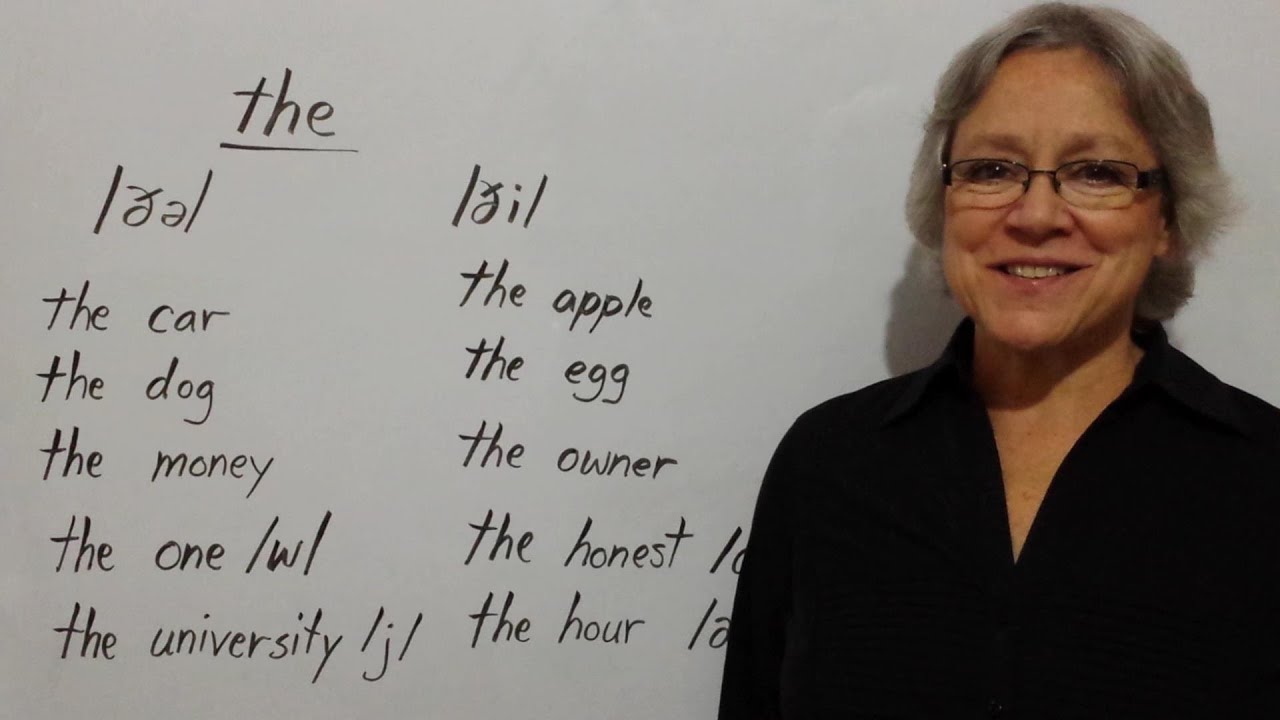 the
/ðə/
/ði/
the car
the dog
the money
the one /w/
the university /j/
the apple
the egg
the owner
the honest
the hour